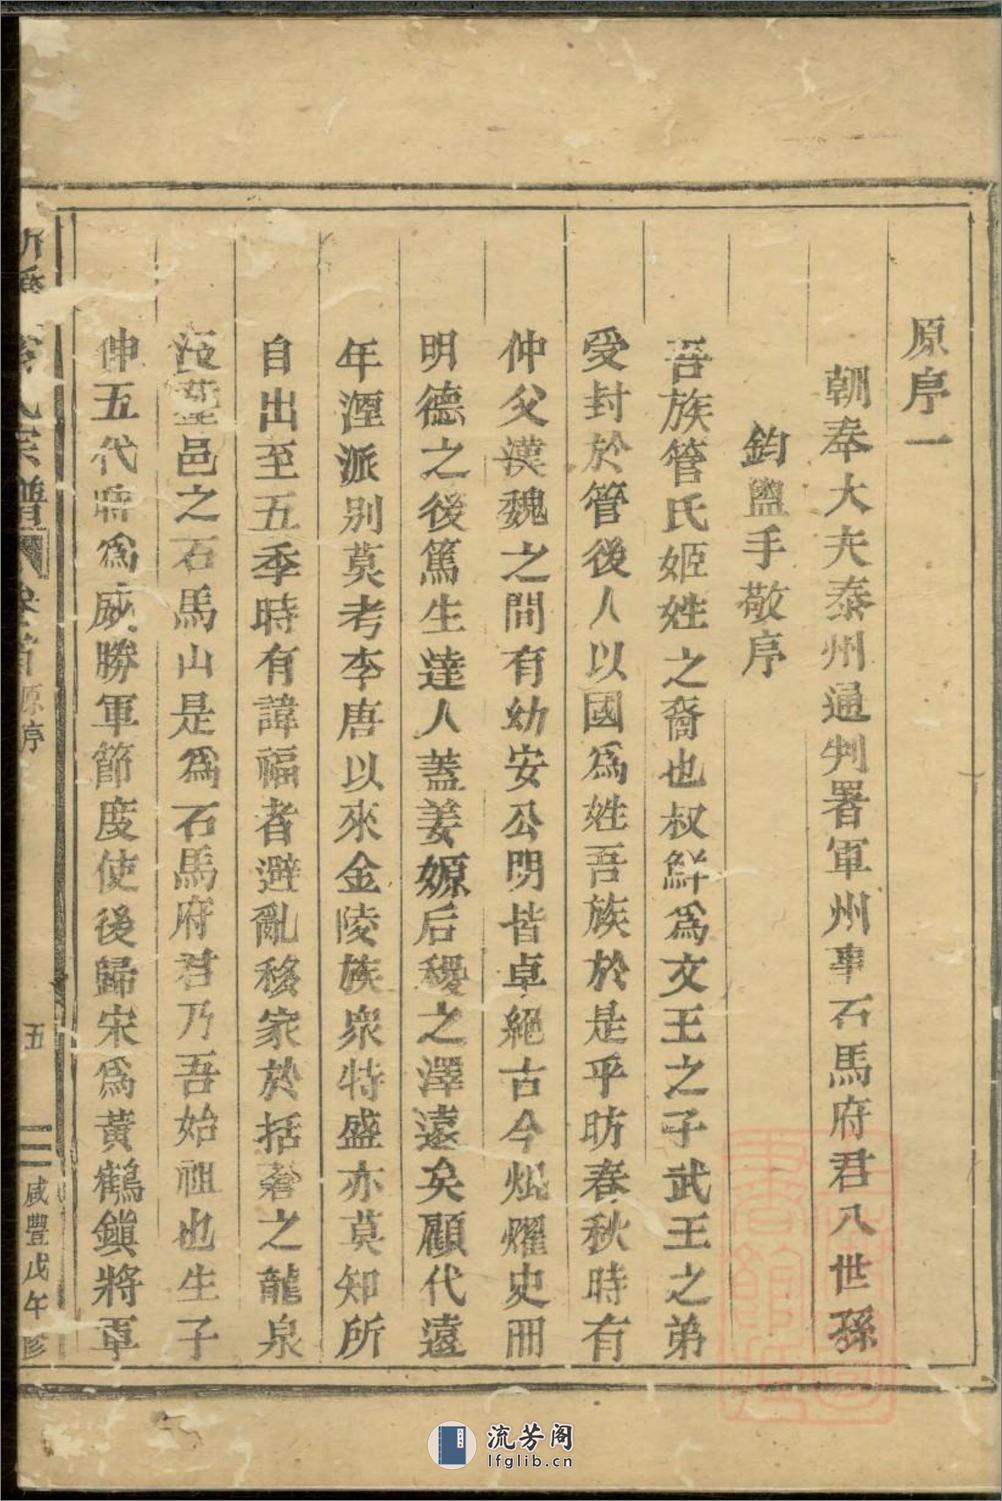 原序一
朝奉大夫泰州通判署軍州事石馬府君八世孫
鈞盥手敬序
吾族管氏姬姓之裔也叔鮮爲文王之子武王之弟
受封於管後人以國爲姓吾族於是乎昉春秋時有
仲父漢魏之間有幼安公明皆卓絕古今焜燿史冊
明德之後篤生達人蓋姜嫄后稷之澤遠矣顧代遠
年湮派別莫考李唐以來金陵族衆特盛亦莫知所
自出至五季時有諱福者避亂移家於括蒼之龍泉
邑之石馬山是爲石馬府君乃吾始祖也生子
伸五代時爲威勝軍節度使後歸宋爲黃鶴鎮將軍
氏宗譜
卷首
原序
五
咸豐戊午修
流芳阁
lfglib.cn